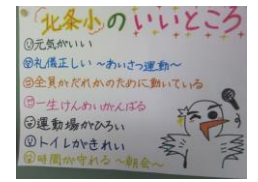 北条小のいいところ
元気がいい
礼儀正しい〜あいさつ運動〜
全員がだれかのために動いている
一生けんめいがんばる
運動場がひろい
トイレがきれい
時間が守れる〜朝会〜